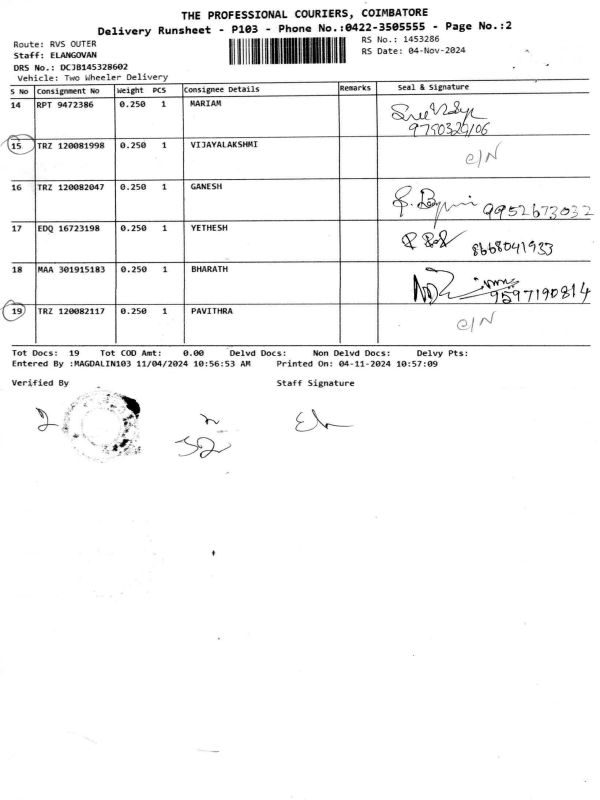 THE PROFESSIONAL COURIERS, COIMBATORE
Delivery Runsheet - P103 - Phone No.:0422-3505555 - Page No.:2
Route: RVS OUTER
RS No.: 1453286
Staff: ELANGOVAN
RS Date: 04-Nov-2024
DRS No.: DCJB145328602
Vehicle: Two Wheeler Delivery
S No Consignment No Weight PCS Consignee Details Remarks Seal & Signature
14 RPT 9472386 0.250 1 MARIAM
15 TRZ 120081998 0.250 1 VIJAYALAKSHMI C/N
16 TRZ 120082047 0.250 1 GANESH 9952673032
17 EDQ 16723198 0.250 1 YETHESH 8668041933
18 MAA 301915183 0.250 1 BHARATH 9597190814
19 TRZ 120082117 0.250 1 PAVITHRA C/N
Tot Docs: 19 Tot COD Amt: 0.00 Delvd Docs: Non Delvd Docs: Delvy Pts:
Entered By :MAGDALIN103 11/04/2024 10:56:53 AM Printed On: 04-11-2024 10:57:09
Verified By Staff Signature